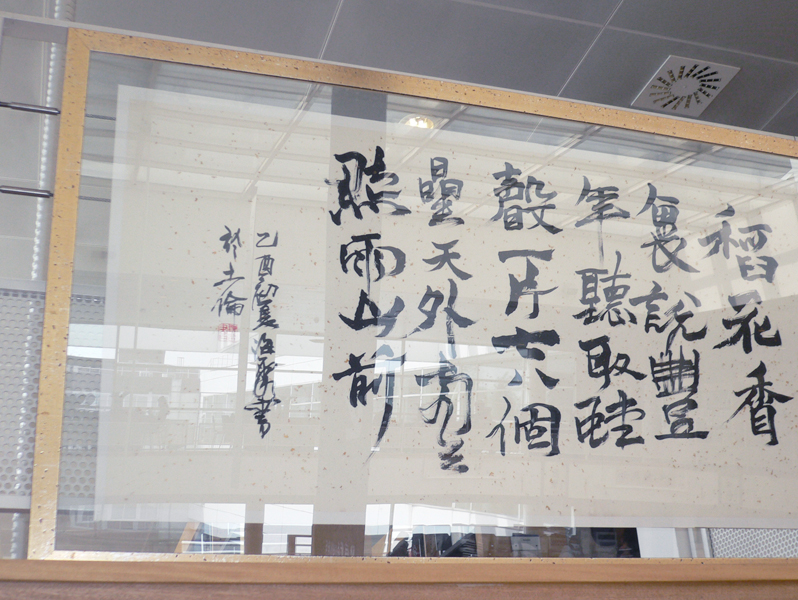 稻花香
裏說豐
年聽取蛙
聲一片七八個
星天外兩三
點雨山前
乙酉初夏